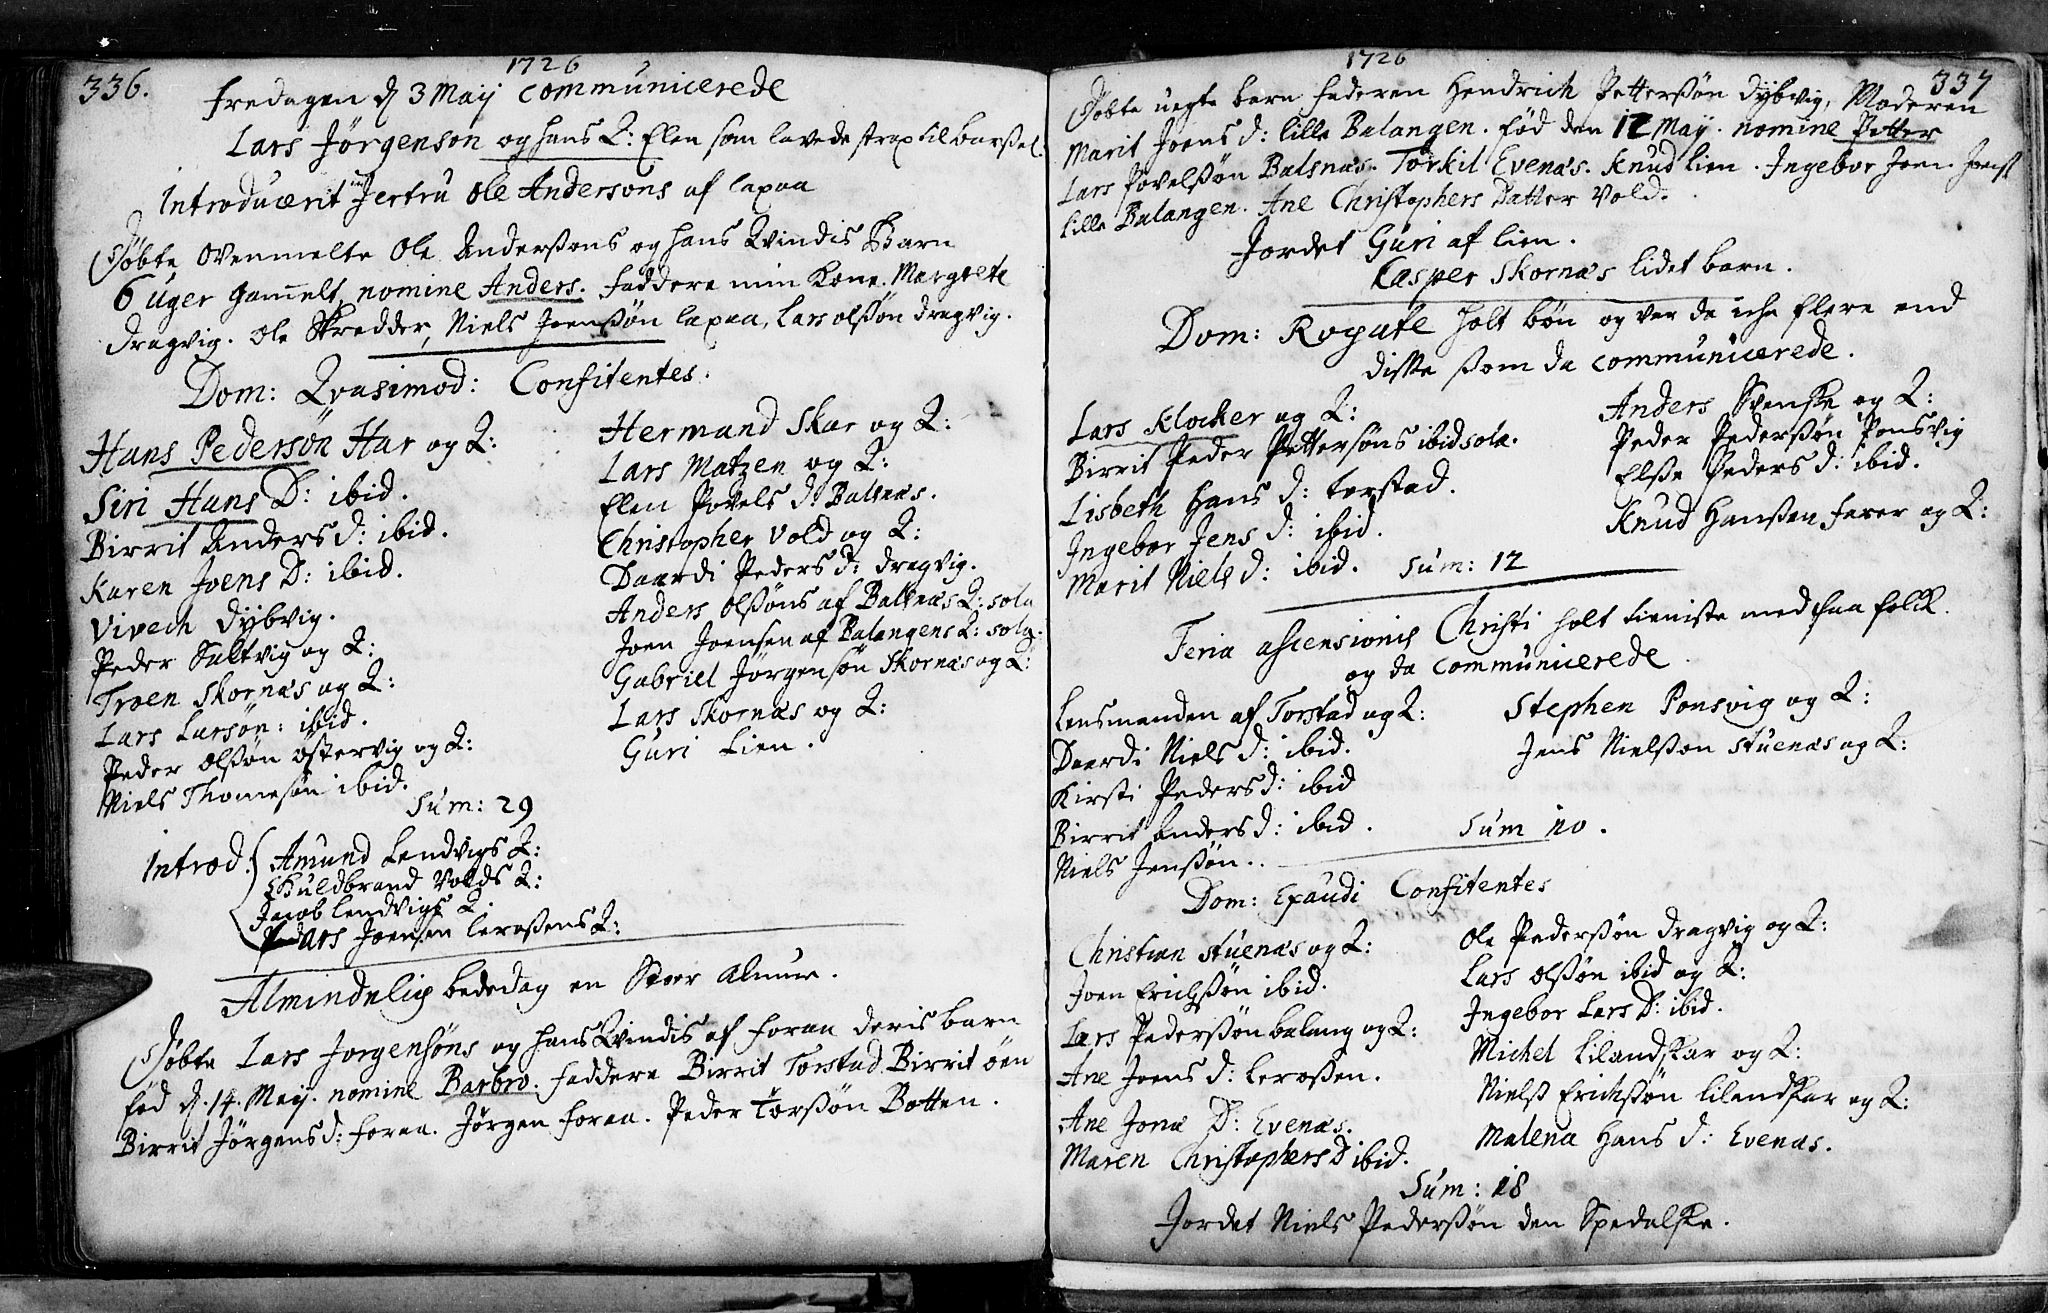 336.
1726
fredagen d 3 Maij communicerede
Lars Jörgenson og hans Q: Elen som lavede strax til barsel.
Introducerit Jertru ole Andersons af lapaa
Döbte ovenmelte ole Anderssons og hans Qvindis Barn
6 uger gamelt nomine Anders. faddere min kone. Margrete
dragvig. ole Skredder, Niels Joenssön lapaa, Lars olssön dragvig.
Dom: Qvasimod: Confitentes.
Hans Pedersön Har og Q:
Siri Hans D: ibid.
Birrit Anders d: ibid.
Karen Joens D: ibid.
Vivech dÿbvig.
Peder Saltvig og Q:
Troen Skornæs og Q:
Lars Larsøn: ibid.
Peder olssön östervig og Q:
Niels Thomesön ibid.
Hermand Skar og Q:
Lars Matzen og Q:
Elen Povels d: Balsnæs.
Christopher vold og Q:
Daardi Peders d: dragvig.
Anders olssöns af Balsnæs Q: sola
Joen Joensen af Balangens Q: sola.
Gabriel Jörgensön Skornæs og Q:
Lars Skornæs og Q:
Guri Lien.
Sum: 29
Introd. Amund Lendvigs Q:
Huldbrand Volds Q:
Jacob Lendvigs Q.
Lars Joensen Lerossens Q:
Almindelig bededag en stoer almue.
Döbte Lars Jorgensöns og hans Qvindis af foraa deris barn
föd d. 14. Maij. nomine Barbro. faddere Birrit Torstad Birrit öen
Birrit Jörgens d: foraa. Jörgen foraa. Peder Torssön Botten.
1726
337
Döbte uegte barn faderen Hendrich Petterssön dÿbvig, Moderen
Marit Joens d: lille Balangen. föd den 12 May. nomine Petter
Lars Povelssön Balsnæs. Torkil Evenæs. Knud lien. Ingebor Joen
lille Balangen. Ane Christophers datter vold.
Jordet Guri af lien.
Casper Skornæs lidet barn.
Dom: Rogate holt bön og var da iche flere end
disse som da communicerede.
Lars klocker og Q:
Birrit Peder Pettersöns ibid sola.
Lisbeth Hans d: torstad.
Ingebor Jens d: ibid.
Marit Niels d: ibid.
Anders Svenske og Q:
Peder Pederssön Ponsvig
Elsse Peders d: ibid.
Knud Hanssen farer og Q:
Sum: 12
Feria ascensionis Christi holt tieniste med faa folck.
og da communicerede
Lensmanden af Torstad og Q:
Daardi Niels d: ibid.
Kirsti Peders d: ibid
Birrit Anders d: ibid.
Niels Jenssön.
Stephen Ponsvig og Q:
Jens Nielsson stuenæs og Q:
Sum 10.
Dom: Exaudi Confitentes
Christian stuenæs og Q:
Joen Erichssön ibid.
Lars Pederssön balang og Q:
Ane Joens d: Lerossen.
Ane Jonæ D: Evenæs.
Maren Christophers D ibid.
ole Pederssön dragvig og Q:
Lars olssön ibid og Q:
Ingebor Lars D: ibid.
Michel Lilandskar og Q:
Nielss Erichssön lilandskar og Q:
Malena Hans d: Evenæs.
Sum: 18
Jordet Niels Pederssön den Spedalske.